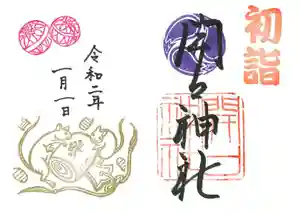 初詣
開口神社
令和二年
一月一日